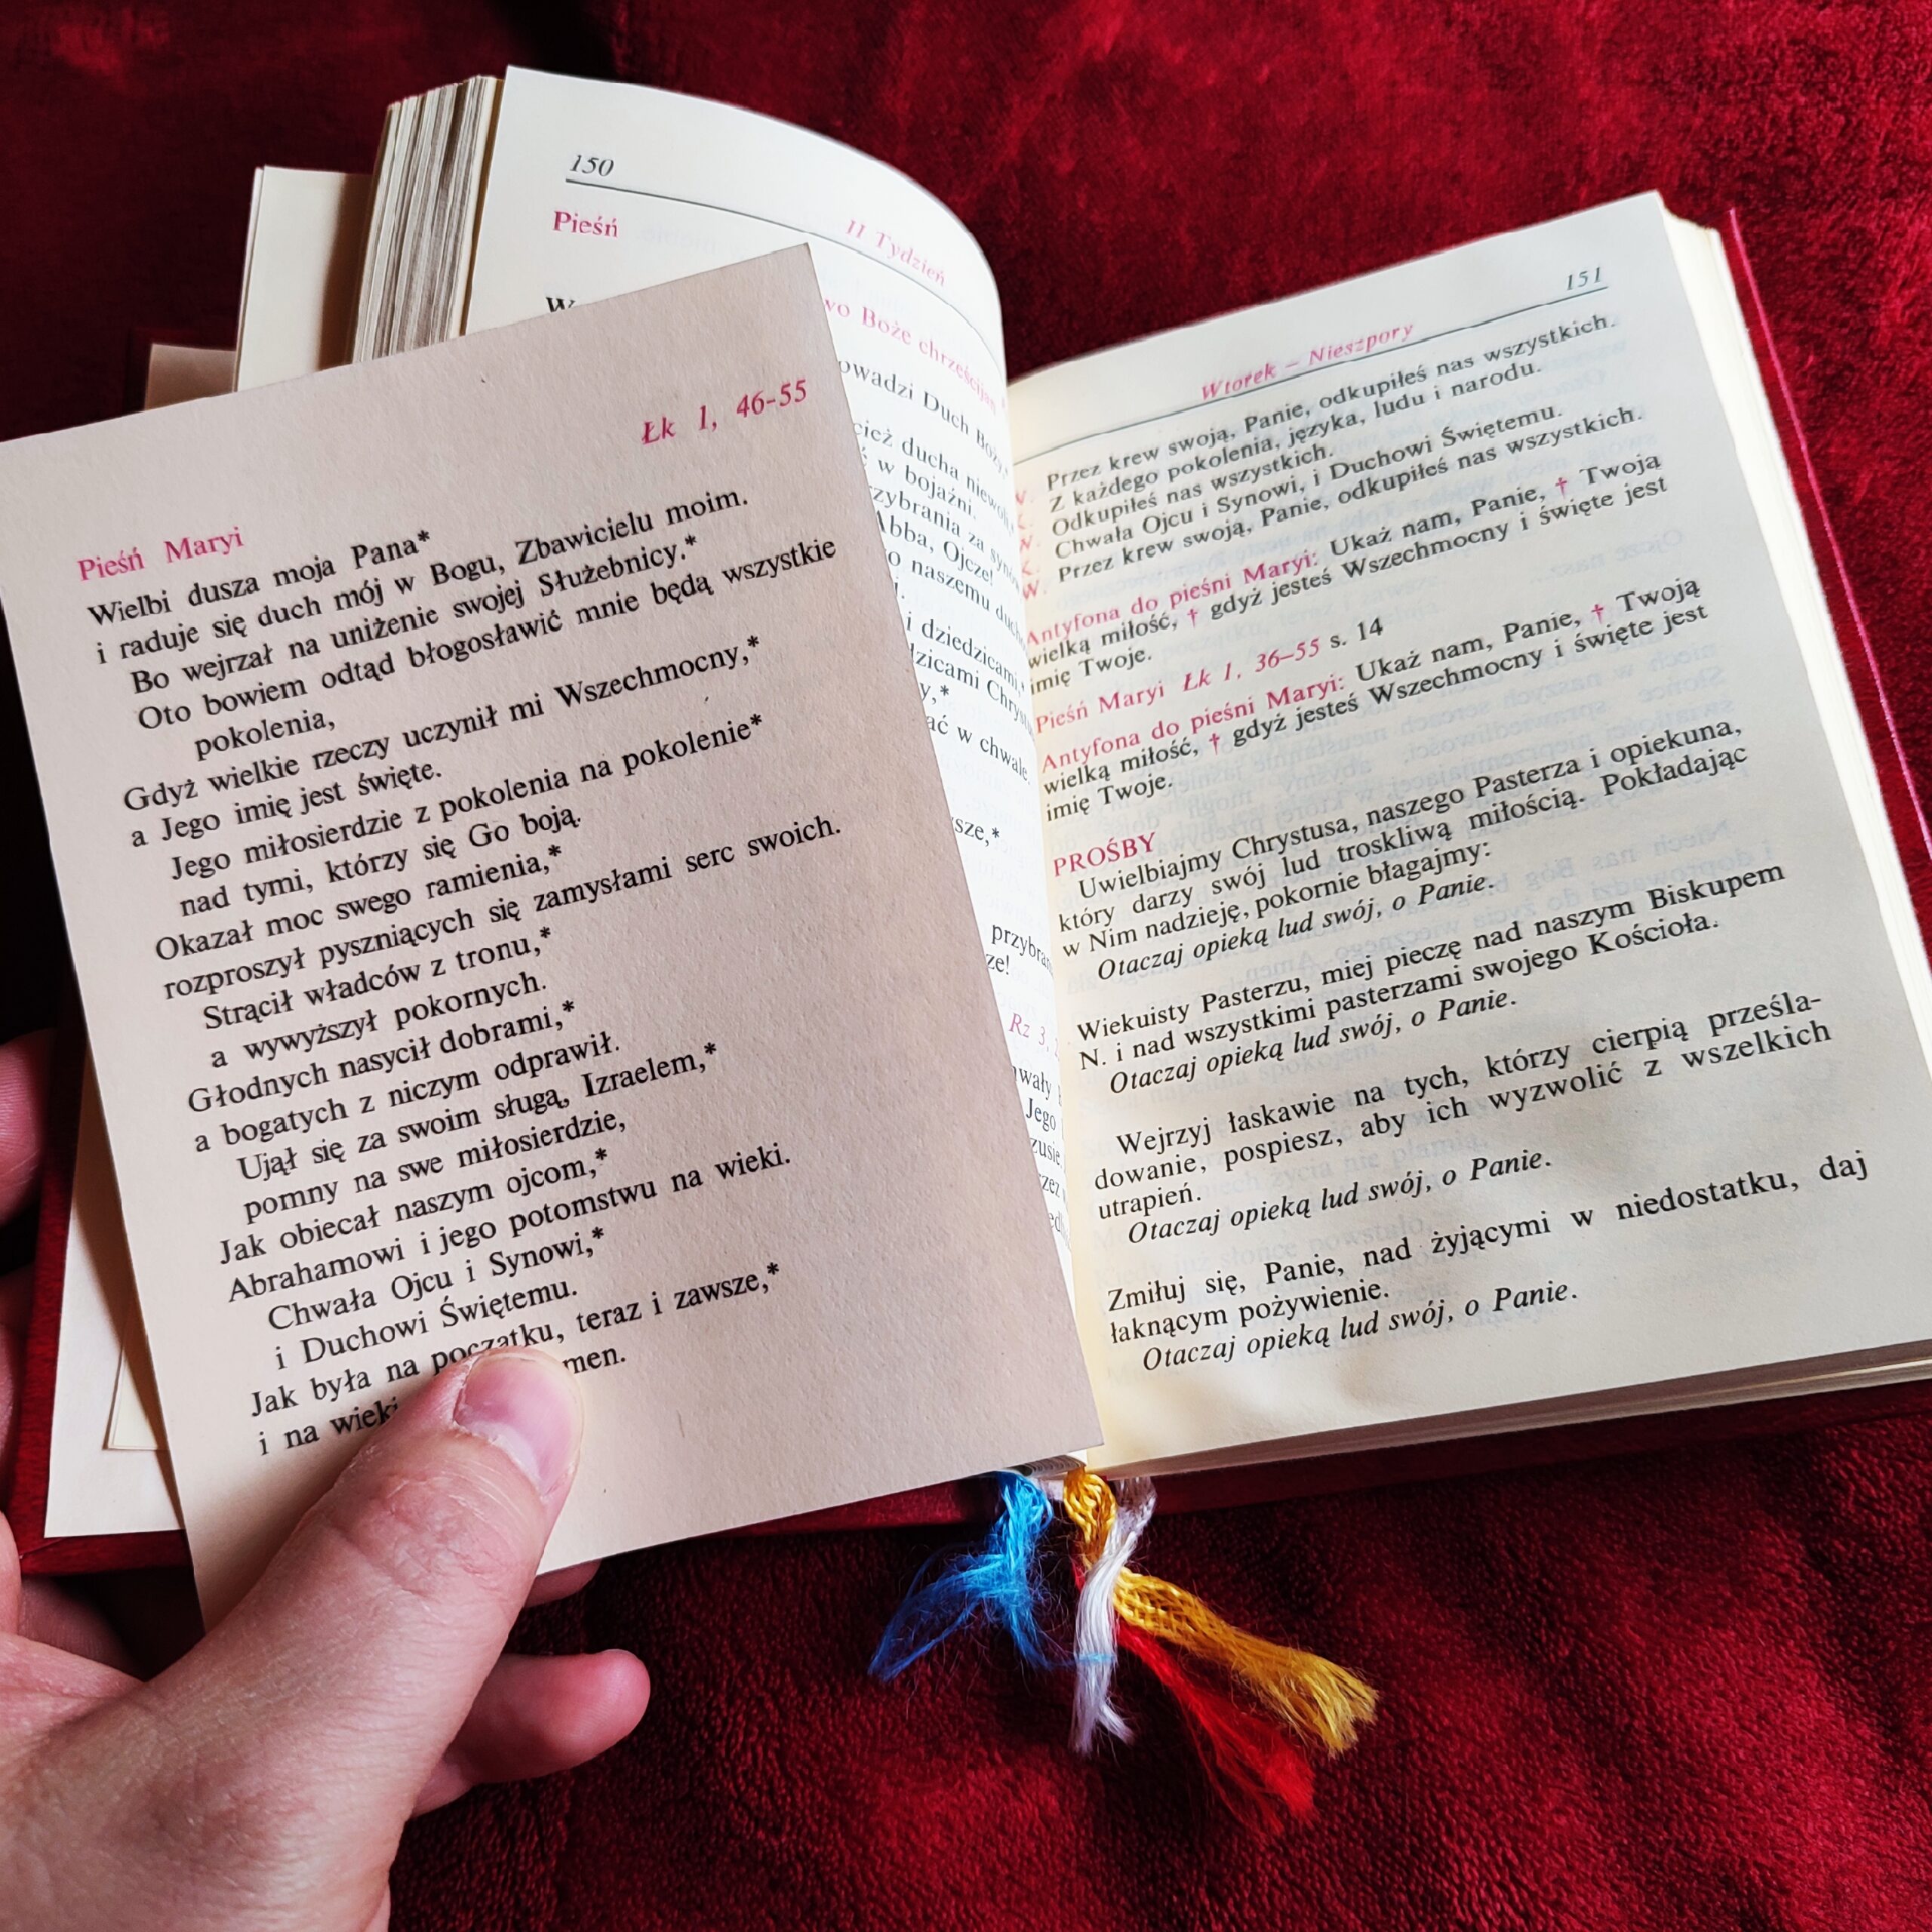 Łk 1, 46-55
Pieśń Maryi
Wielbi dusza moja Pana*
i raduje się duch mój w Bogu, Zbawicielu moim.
Bo wejrzał na uniżenie swojej Służebnicy.*
Oto bowiem odtąd błogosławić mnie będą wszystkie
pokolenia,
Gdyż wielkie rzeczy uczynił mi Wszechmocny,*
a Jego imię jest święte.
Jego miłosierdzie z pokolenia na pokolenie*
nad tymi, którzy się Go boją.
Okazał moc swego ramienia,*
rozproszył pyszniących się zamysłami serc swoich.
Strącił władców z tronu,*
a wywyższył pokornych.
Głodnych nasycił dobrami,*
a bogatych z niczym odprawił.
Ujął się za swoim sługą, Izraelem,*
pomny na swe miłosierdzie,
Jak obiecał naszym ojcom,*
Abrahamowi i jego potomstwu na wieki.
Chwała Ojcu i Synowi,*
i Duchowi Świętemu.
Jak była na początku, teraz i zawsze,*
i na wieki
150
II Tydzień
Pieśń
Boże chrześcijan
Duch Boży,
ducha
w bojaźni.
przybrania za
Abba, Ojcze!
naszemu
i dziedzicami,
w chwale.
Rz 3,
Jego
151
Wtorek – Nieszpory
Przez krew swoją, Panie, odkupiłeś nas wszystkich.
Z każdego pokolenia, języka, ludu i narodu.
Odkupiłeś nas wszystkich.
Chwała Ojcu i Synowi, i Duchowi Świętemu.
W. Przez krew swoją, Panie, odkupiłeś nas wszystkich.
Antyfona do pieśni Maryi: Ukaż nam, Panie, † Twoją
wielką miłość, † gdyż jesteś Wszechmocny i święte jest
imię Twoje.
Pieśń Maryi Łk 1, 36–55 s. 14
Antyfona do pieśni Maryi: Ukaż nam, Panie, † Twoją
wielką miłość, † gdyż jesteś Wszechmocny i święte jest
imię Twoje.
PROŚBY
Uwielbiajmy Chrystusa, naszego Pasterza i opiekuna,
który darzy swój lud troskliwą miłością. Pokładając
w Nim nadzieję, pokornie błagajmy:
Otaczaj opieką lud swój, o Panie.
Wiekuisty Pasterzu, miej pieczę nad naszym Biskupem
N. i nad wszystkimi pasterzami swojego Kościoła.
Otaczaj opieką lud swój, o Panie.
Wejrzyj łaskawie na tych, którzy cierpią prześla-
dowanie, pospiesz, aby ich wyzwolić z wszelkich
utrapień.
Otaczaj opieką lud swój, o Panie.
Zmiłuj się, Panie, nad żyjącymi w niedostatku, daj
łaknącym pożywienie.
Otaczaj opieką lud swój, o Panie.